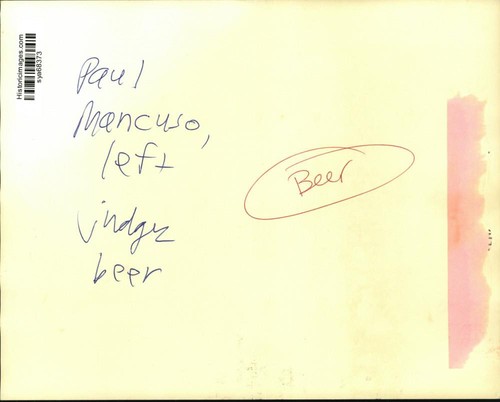 Historicimages.com
sya68373
Paul
Mancuso,
left
judges
beer
Beer